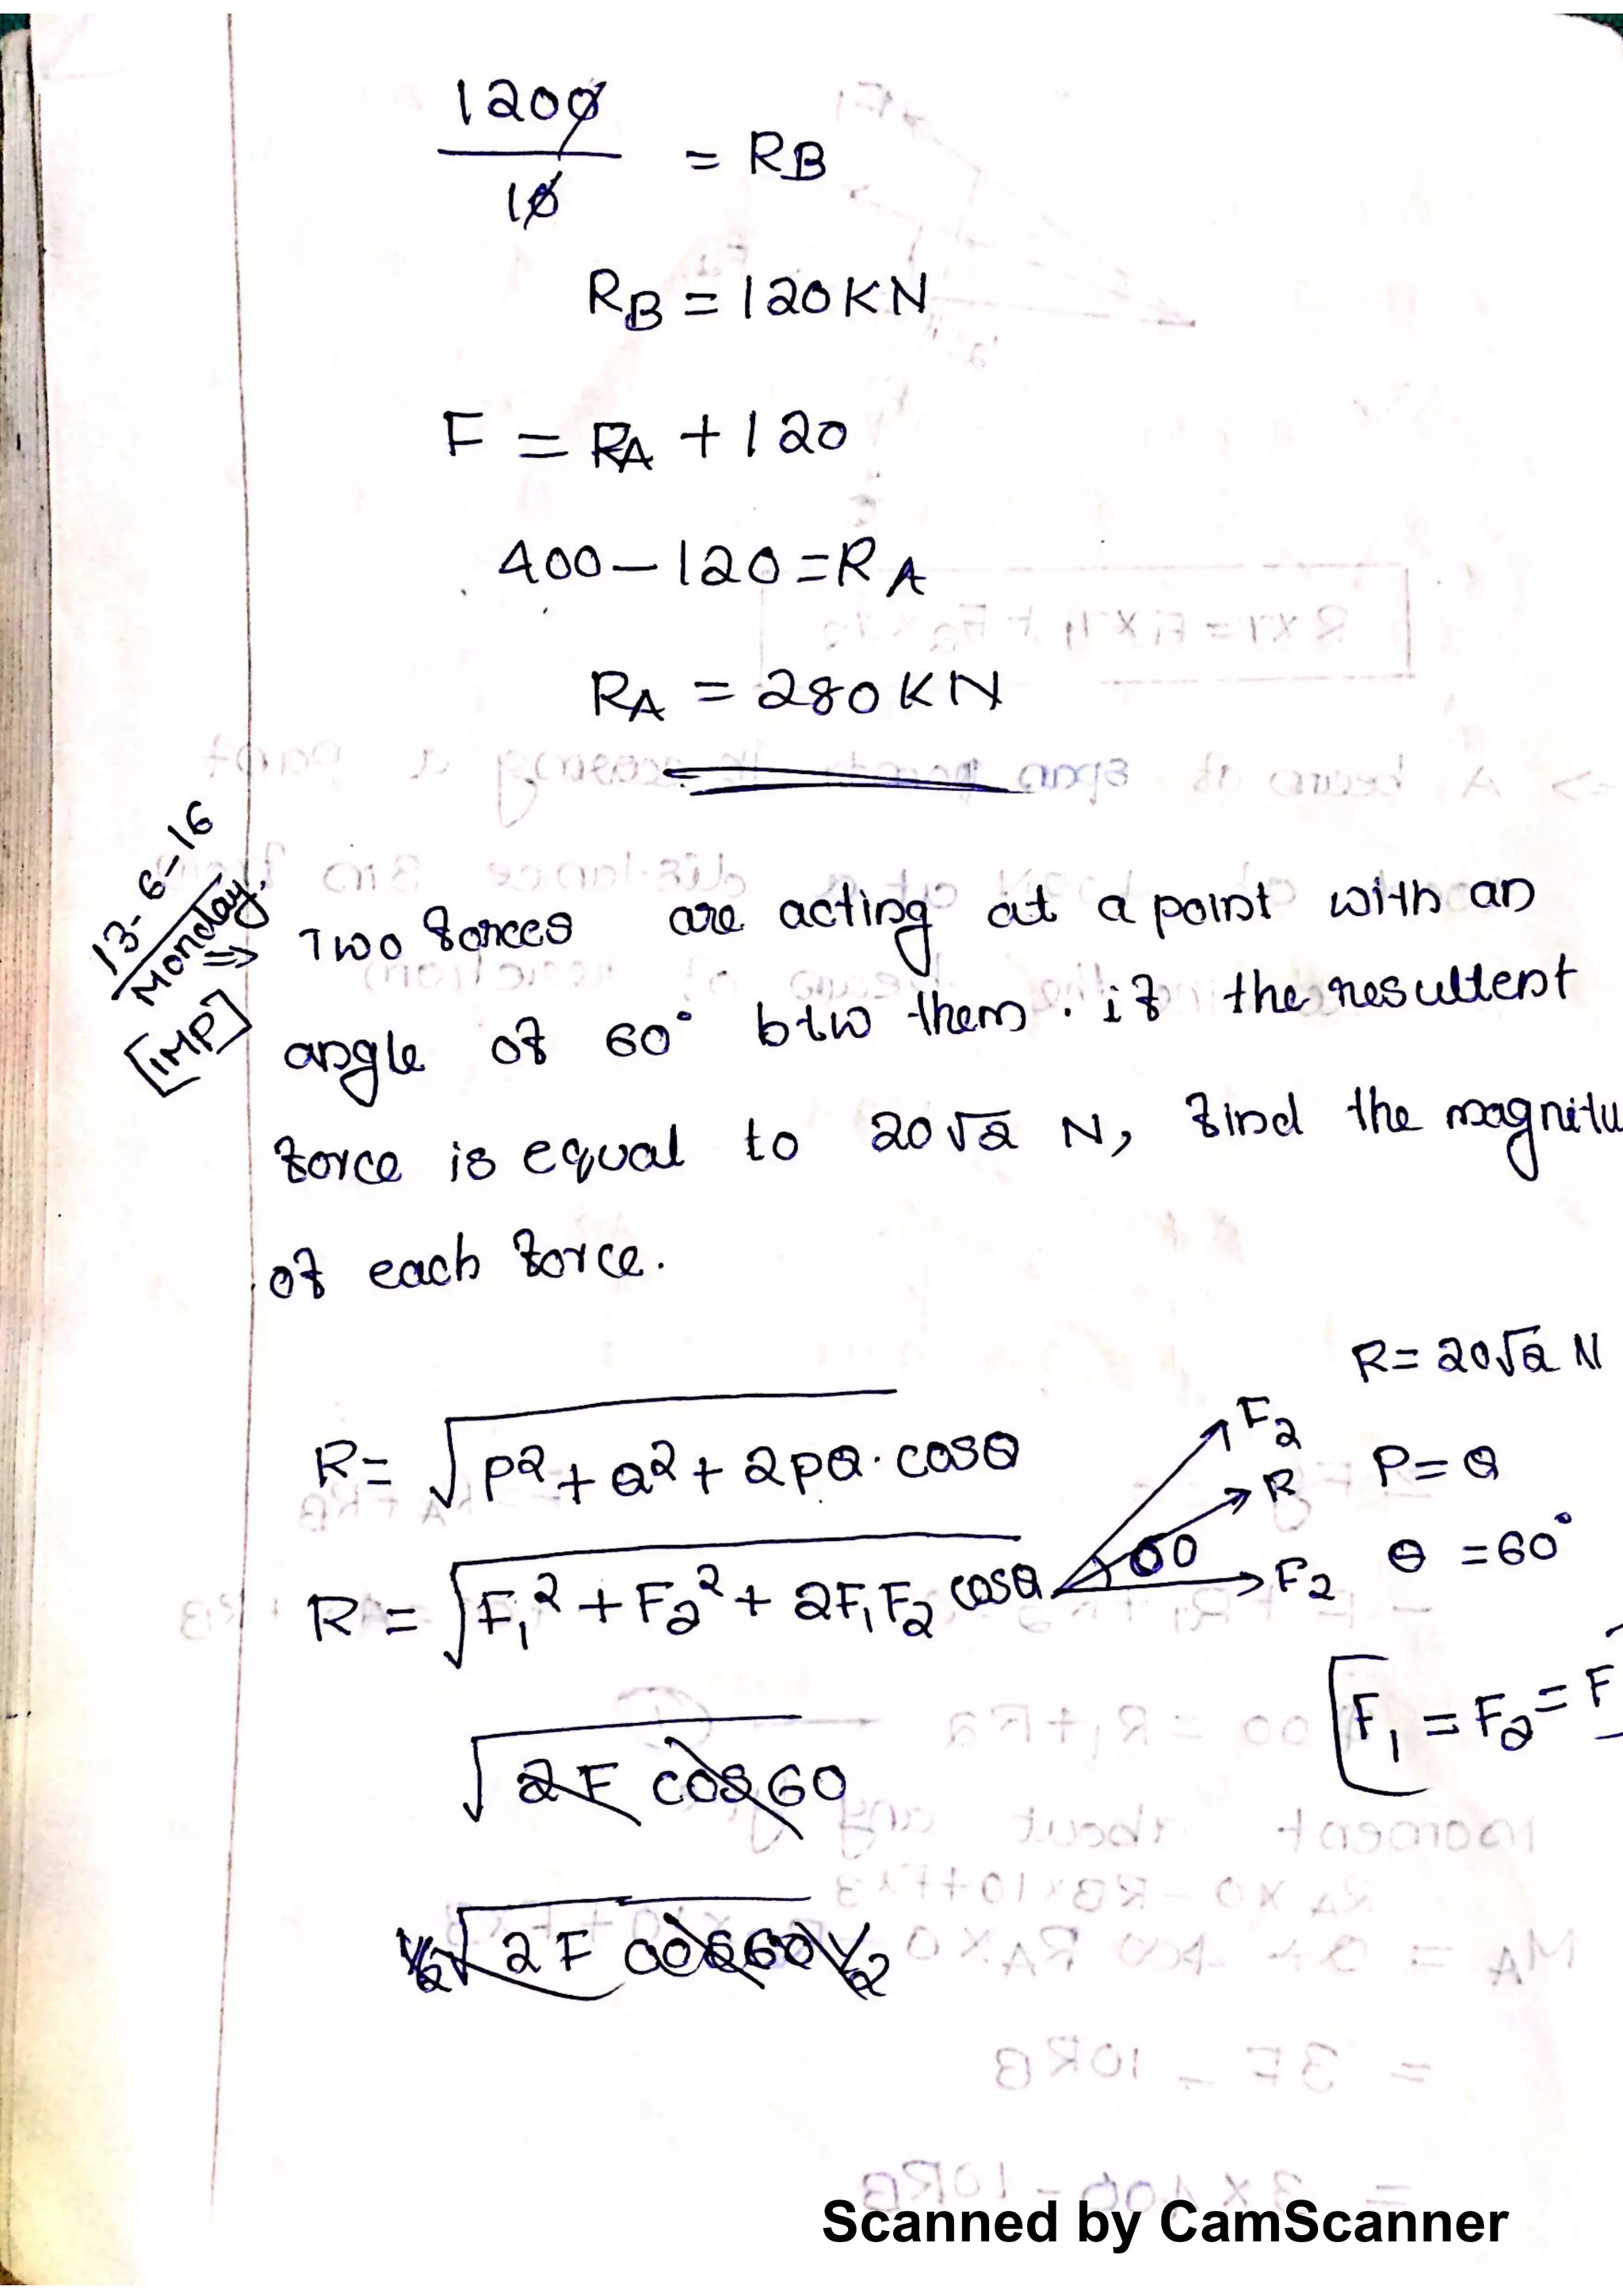 1200
10
= RB
RB = 120KN
F = RA + 120
400 - 120 = RA
RA = 280KN
13-6-16
Monday.
[IMP]
⇒ Two forces are acting at a point with an
angle of 60° btw them. if the resultent
force is equal to 20√2 N, find the magnitu
of each force.
R = 20√2 N
R = √P2 + Q2 + 2PQ. cosθ
F2
R
60
F2
P = Q
R = √F1² + F2² + 2F1F2 cosθ
θ = 60°
[F1 = F2 = F
√2F cos60
1/2 √2F cos60 1/2
Scanned by CamScanner